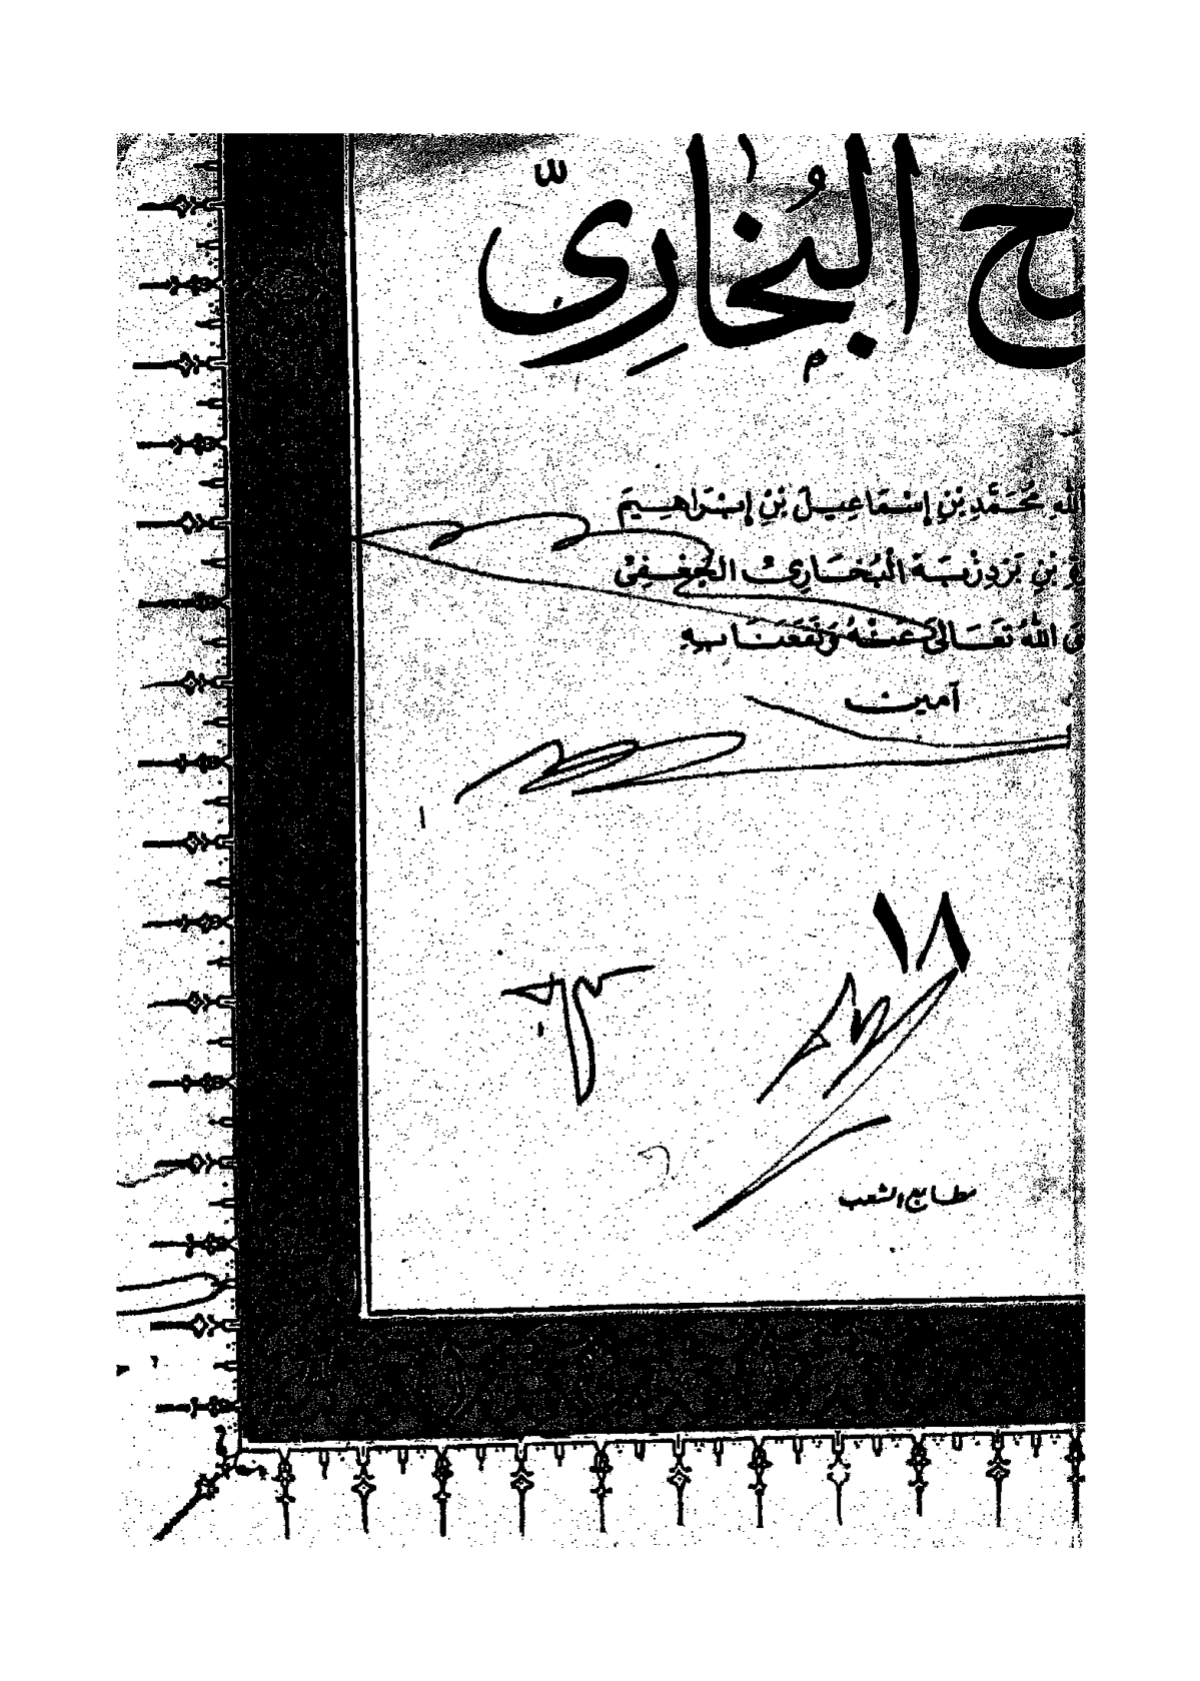 ح البُخاريّ
الله مُحَمَّدِ بْنِ إِسْمَاعِيلَ بْنِ إِبْرَاهِيمَ
بْنِ بَرْدِزْبَة الْبُخَارِيّ الجُعْفِيّ
الله تَعَالَى عَنْهُ وَنَفَعَنَا بِهِ
آمين
١٨
مطابع الشعب